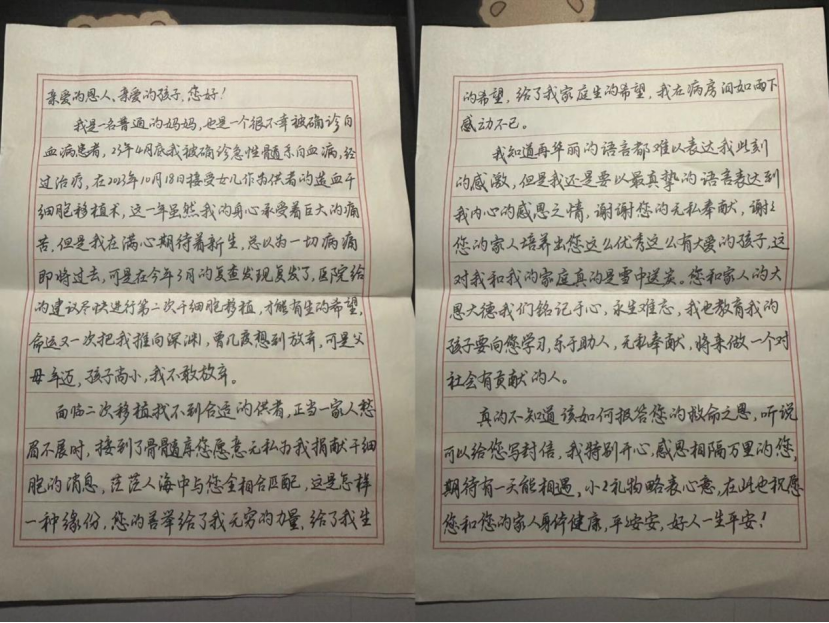 亲爱的恩人、亲爱的孩子，您好！
我是一名普通的妈妈，也是一个很不幸被确诊白
血病患者，23年4月底我被确诊急性髓系白血病，经
过治疗，在2023年10月18日接受女儿作为供者的造血干
细胞移植术，这一年虽然我的身心承受着巨大的痛
苦，但是我在满心期待着新生，总以为一切病痛
即将过去，可是在今年3月的复查发现复发了，医院给
的建议尽快进行第二次干细胞移植，才能有生的希望，
命运又一次把我推向深渊，曾几度想到放弃，可是父
母年迈，孩子尚小，我不敢放弃。
面临二次移植找不到合适的供者，正当一家人愁
眉不展时，接到了骨髓库您愿意无私为我捐献干细
胞的消息，茫茫人海中与您全相合匹配，这是怎样
一种缘份，您的善举给了我无穷的力量，给了我生
的希望，给了我家庭生的希望，我在病房间如雨下
感动不已。
我知道再华丽的语言都难以表达我此刻
的感激，但是我还是要以最真挚的语言表达到
我内心的感恩之情，谢谢您的无私奉献，谢谢
您的家人培养出您这么优秀这么有大爱的孩子，这
对我和我的家庭真的是雪中送炭。您和家人的大
恩大德我们铭记于心，永生难忘，我也教育我的
孩子要向您学习，乐于助人，无私奉献，将来做一个对
社会有贡献的人。
真的不知道该如何报答您的救命之恩，听说
可以给您写封信，我特别开心，感恩相隔万里的您，
期待有一天能相遇，小小礼物略表心意，在此也祝愿
您和您的家人身体健康，平安安，好人一生平安！